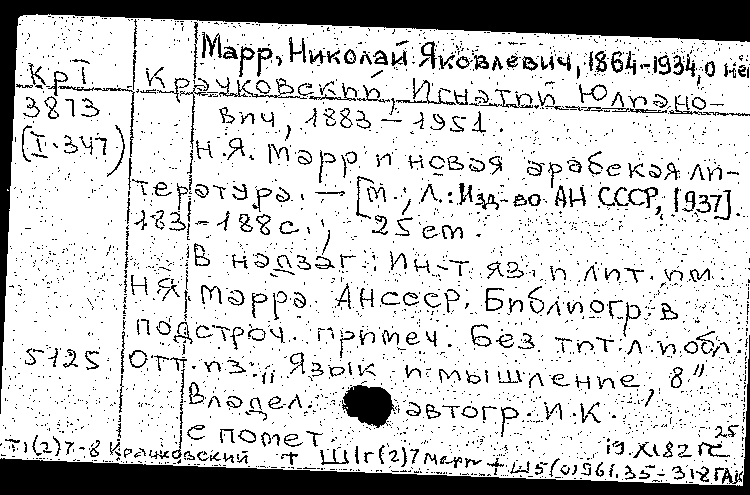 Марр, Николай Яковлевич, 1864-1934, о нем
КрI Крачковский, Игнатий Юлиано-
3873 вич, 1883-1951.
(I-347) Н.Я. Марр и новая арабская ли-
тература. — [М.; Л.: Изд-во АН СССР, 1937].
183-188 с.; 25 см.
В надзаг.: Ин-т яз. и лит. им.
Н.Я. Марра АНСССР. Библиогр. в
подстроч. примеч. Без тит. л. и обл.
5125 Отт. из: „Язык и мышление, 8"
Владел. автогр. И.К.
с помет.
25
19.XI82 ГС
+ Ш1г(2)7 Марр +
Крачковский